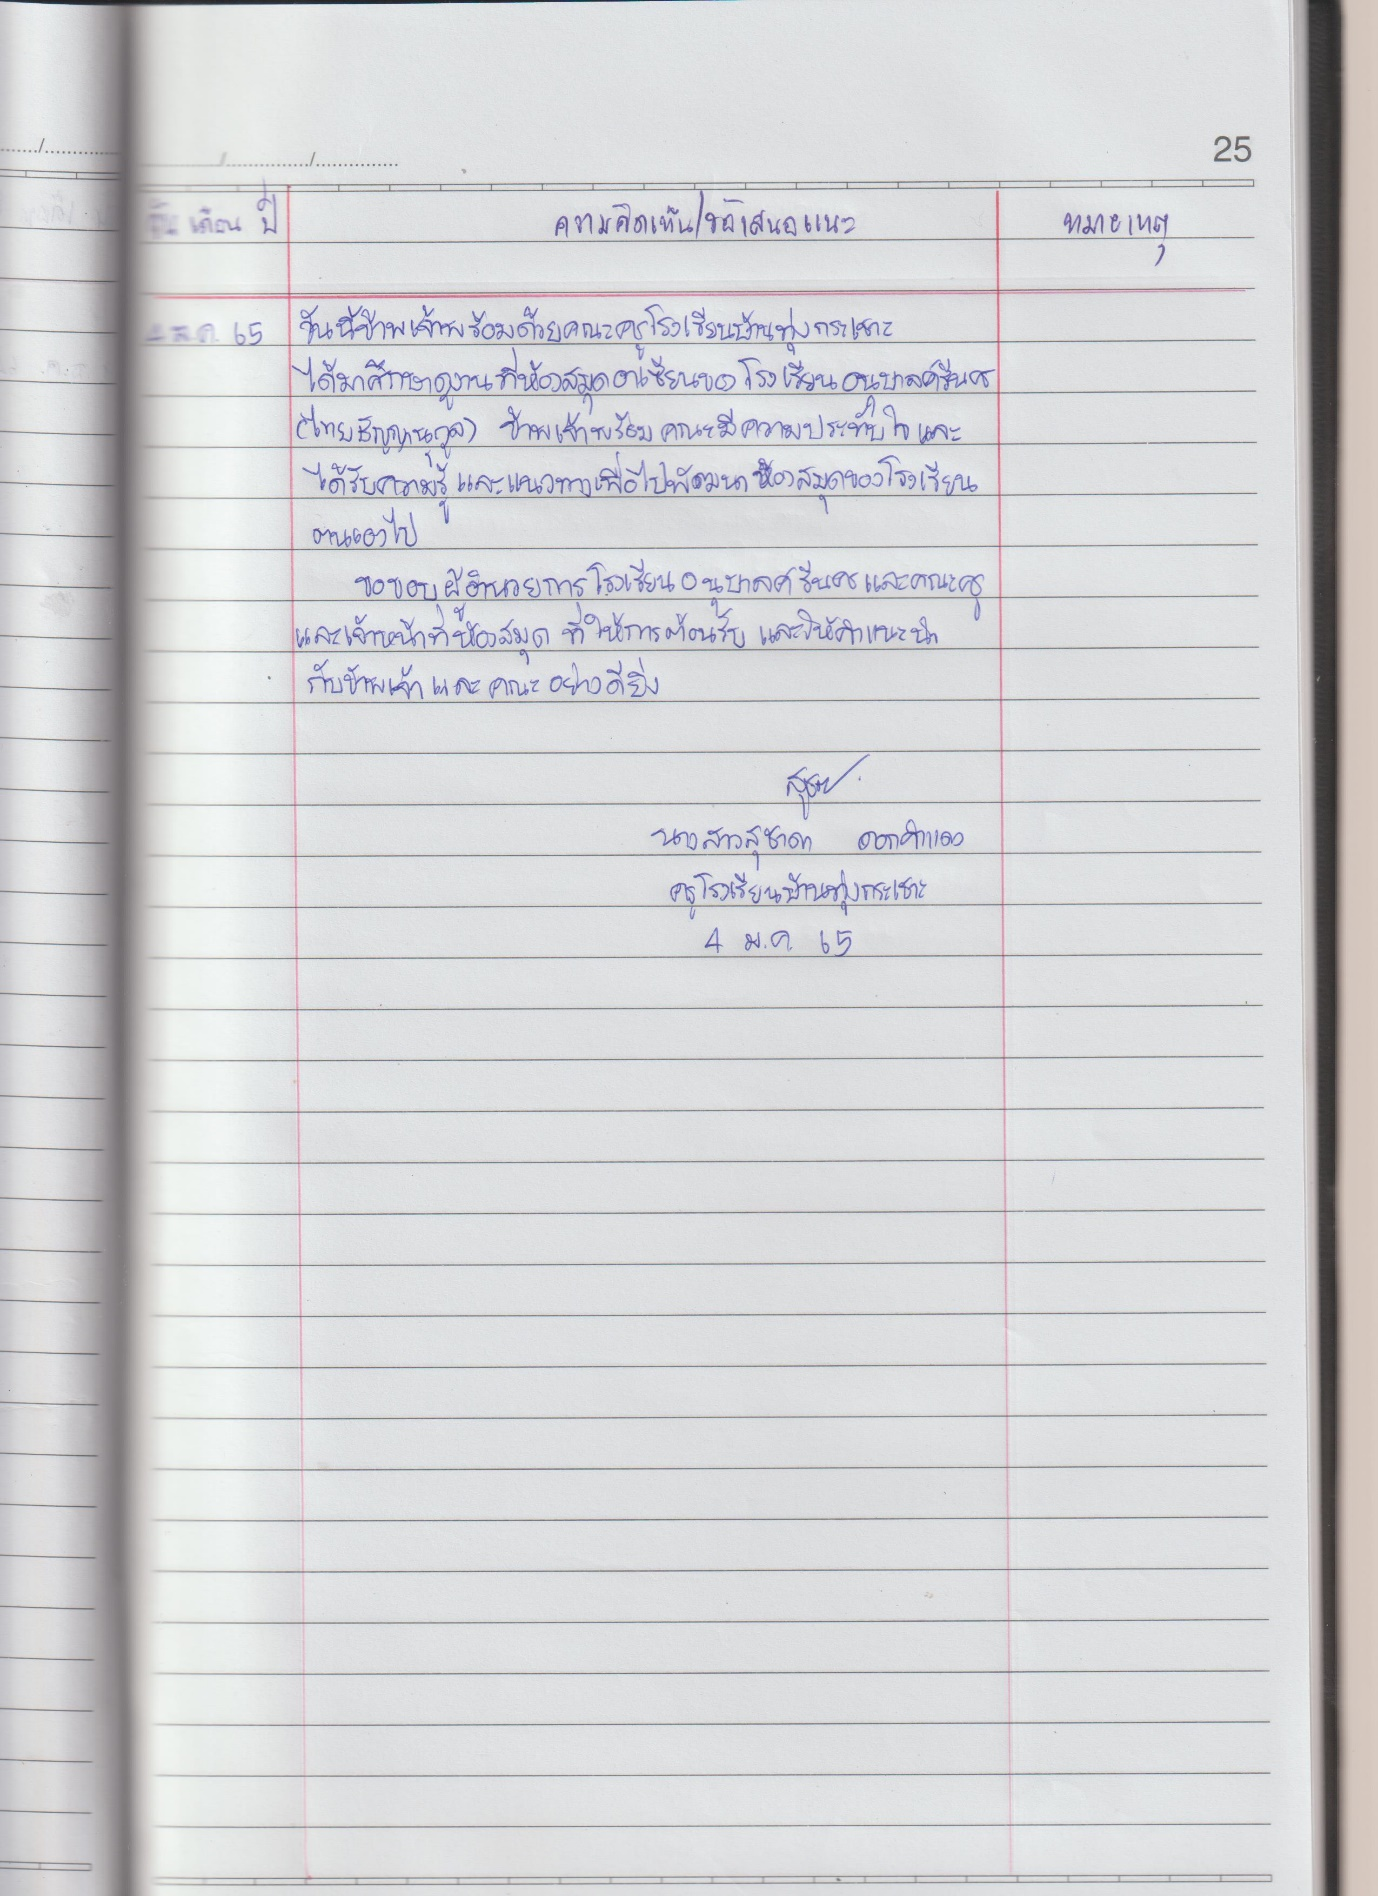 25
วัน เดือน ปี ความคิดเห็น/ข้อเสนอแนะ หมายเหตุ
4 ม.ค. 65 วันนี้ข้าพเจ้าพร้อมด้วยคณะครูโรงเรียนบ้านทุ่งกระเชาะ
ได้มาศึกษาดูงานที่ห้องสมุดอาเซียนของโรงเรียนอนุบาลศรีนคร
(ไทยรัฐญานุกูล) ข้าพเจ้าพร้อมคณะมีความประทับใจและ
ได้รับความรู้และแนวทางเพื่อไปพัฒนาห้องสมุดของโรงเรียน
ตนเองไป
ขอขอบผู้อำนวยการโรงเรียนอนุบาลศรีนครและคณะครู
และเจ้าหน้าที่ห้องสมุด ที่ให้การต้อนรับ และให้คำแนะนำ
กับข้าพเจ้า และคณะอย่างดียิ่ง
นางสาวสุชาดา ดอกคำแดง
ครูโรงเรียนบ้านทุ่งกระเชาะ
4 ม.ค. 65